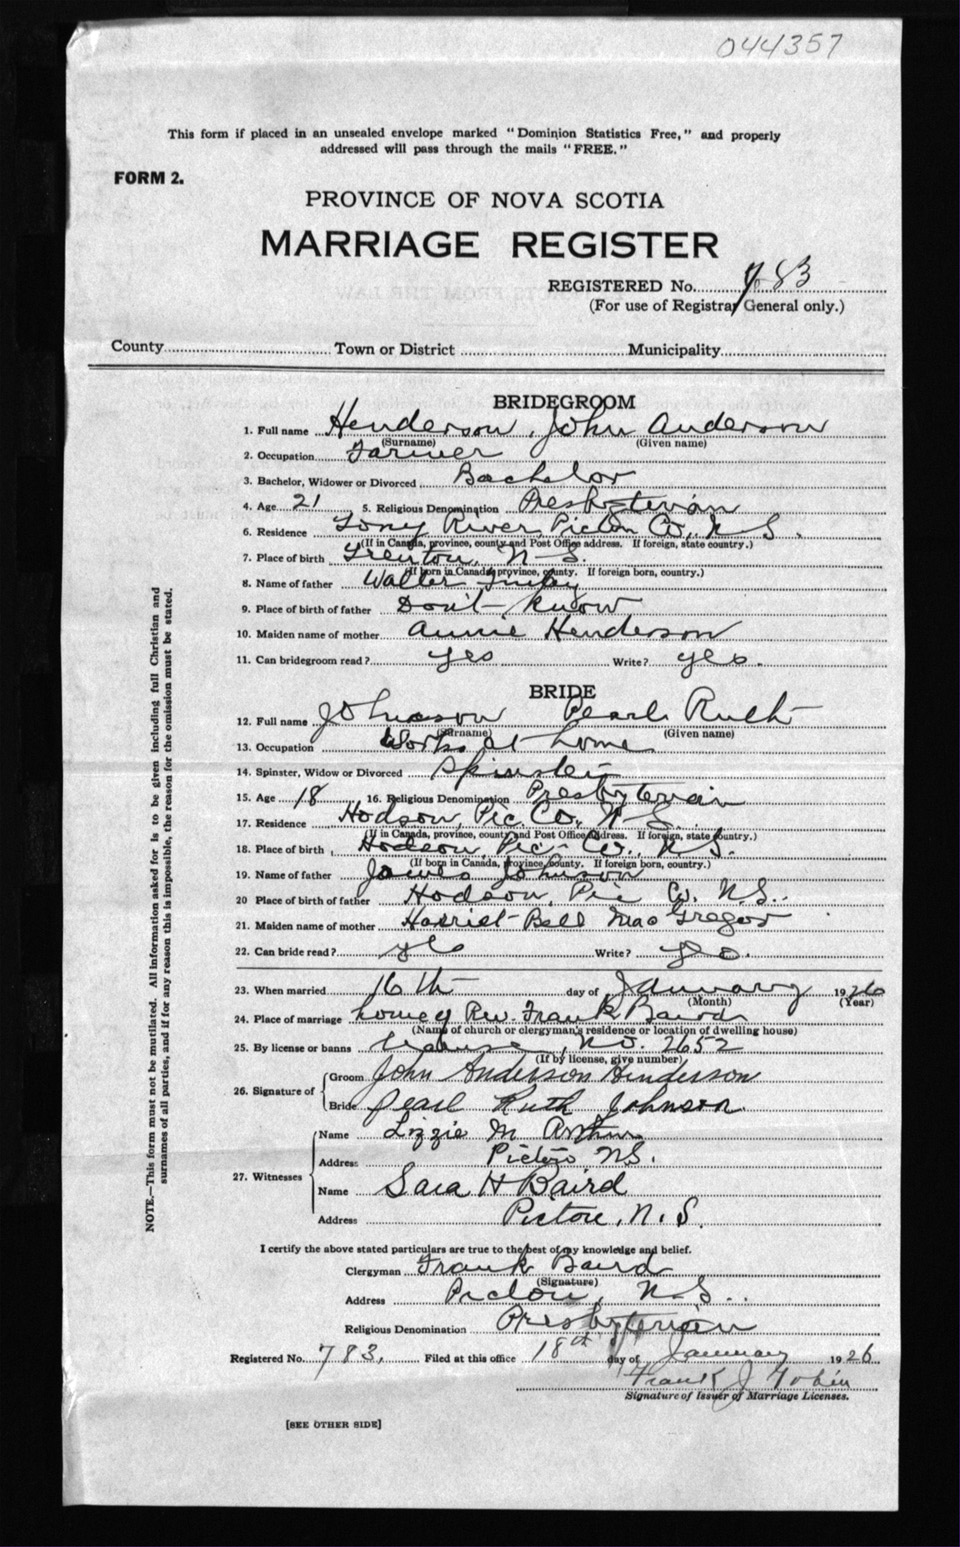 044357
This form if placed in an unsealed envelope marked "Dominion Statistics Free," and properly
addressed will pass through the mails "FREE."
FORM 2.
PROVINCE OF NOVA SCOTIA
MARRIAGE REGISTER
REGISTERED No. 783
(For use of Registrar General only.)
County Town or District Municipality
BRIDEGROOM
1. Full name Henderson, John Anderson
(Surname) (Given name)
2. Occupation Farmer
3. Bachelor, Widower or Divorced Bachelor
4. Age 21 5. Religious Denomination Presbyterian
6. Residence Tony River, Pictou Co, N S.
(If in Canada, province, county and Post Office address. If foreign, state country.)
7. Place of birth Trenton, N-S.
(If born in Canada, province, county. If foreign born, country.)
8. Name of father Walter
9. Place of birth of father Don't know
10. Maiden name of mother Annie Henderson
11. Can bridegroom read? yes Write? yes.
BRIDE
12. Full name Johnson Pearl Ruth
(Surname) (Given name)
13. Occupation Works at home
14. Spinster, Widow or Divorced Spinster
15. Age 18 16. Religious Denomination Presbyterian
17. Residence Hodson, Pic. Co. N-S.
(If in Canada, province, county and Post Office address. If foreign, state country.)
18. Place of birth Hodson, Pic- Co., N.S.
(If born in Canada, province, county. If foreign born, country.)
19. Name of father James Johnson
20 Place of birth of father Hodson, Pic Co. N.S.
21. Maiden name of mother Harriet Bell MacGregor
22. Can bride read? yes Write? yes.
23. When married 16th day of January 1926
(Month) (Year)
24. Place of marriage home of Rev. Frank Baird
(Name of church or clergyman's residence or location of dwelling house)
25. By license or banns License, No. 2652
(If by license, give number)
26. Signature of Groom John Anderson Henderson
Bride Pearl Ruth Johnson
27. Witnesses
Name Lizzie McArthur
Address Pictou N.S.
Name Sara H Baird
Address Pictou, N.S.
I certify the above stated particulars are true to the best of my knowledge and belief.
Clergyman Frank Baird
(Signature)
Address Pictou, N-S.
Religious Denomination Presbyterian
Registered No. 783, Filed at this office 18th day of January 1926
Frank J Tobin
Signature of Issuer of Marriage Licenses.
[SEE OTHER SIDE]
NOTE.—This form must not be mutilated. All information asked for is to be given including full Christian and
surnames of all parties, and if for any reason this is impossible, the reason for the omission must be stated.